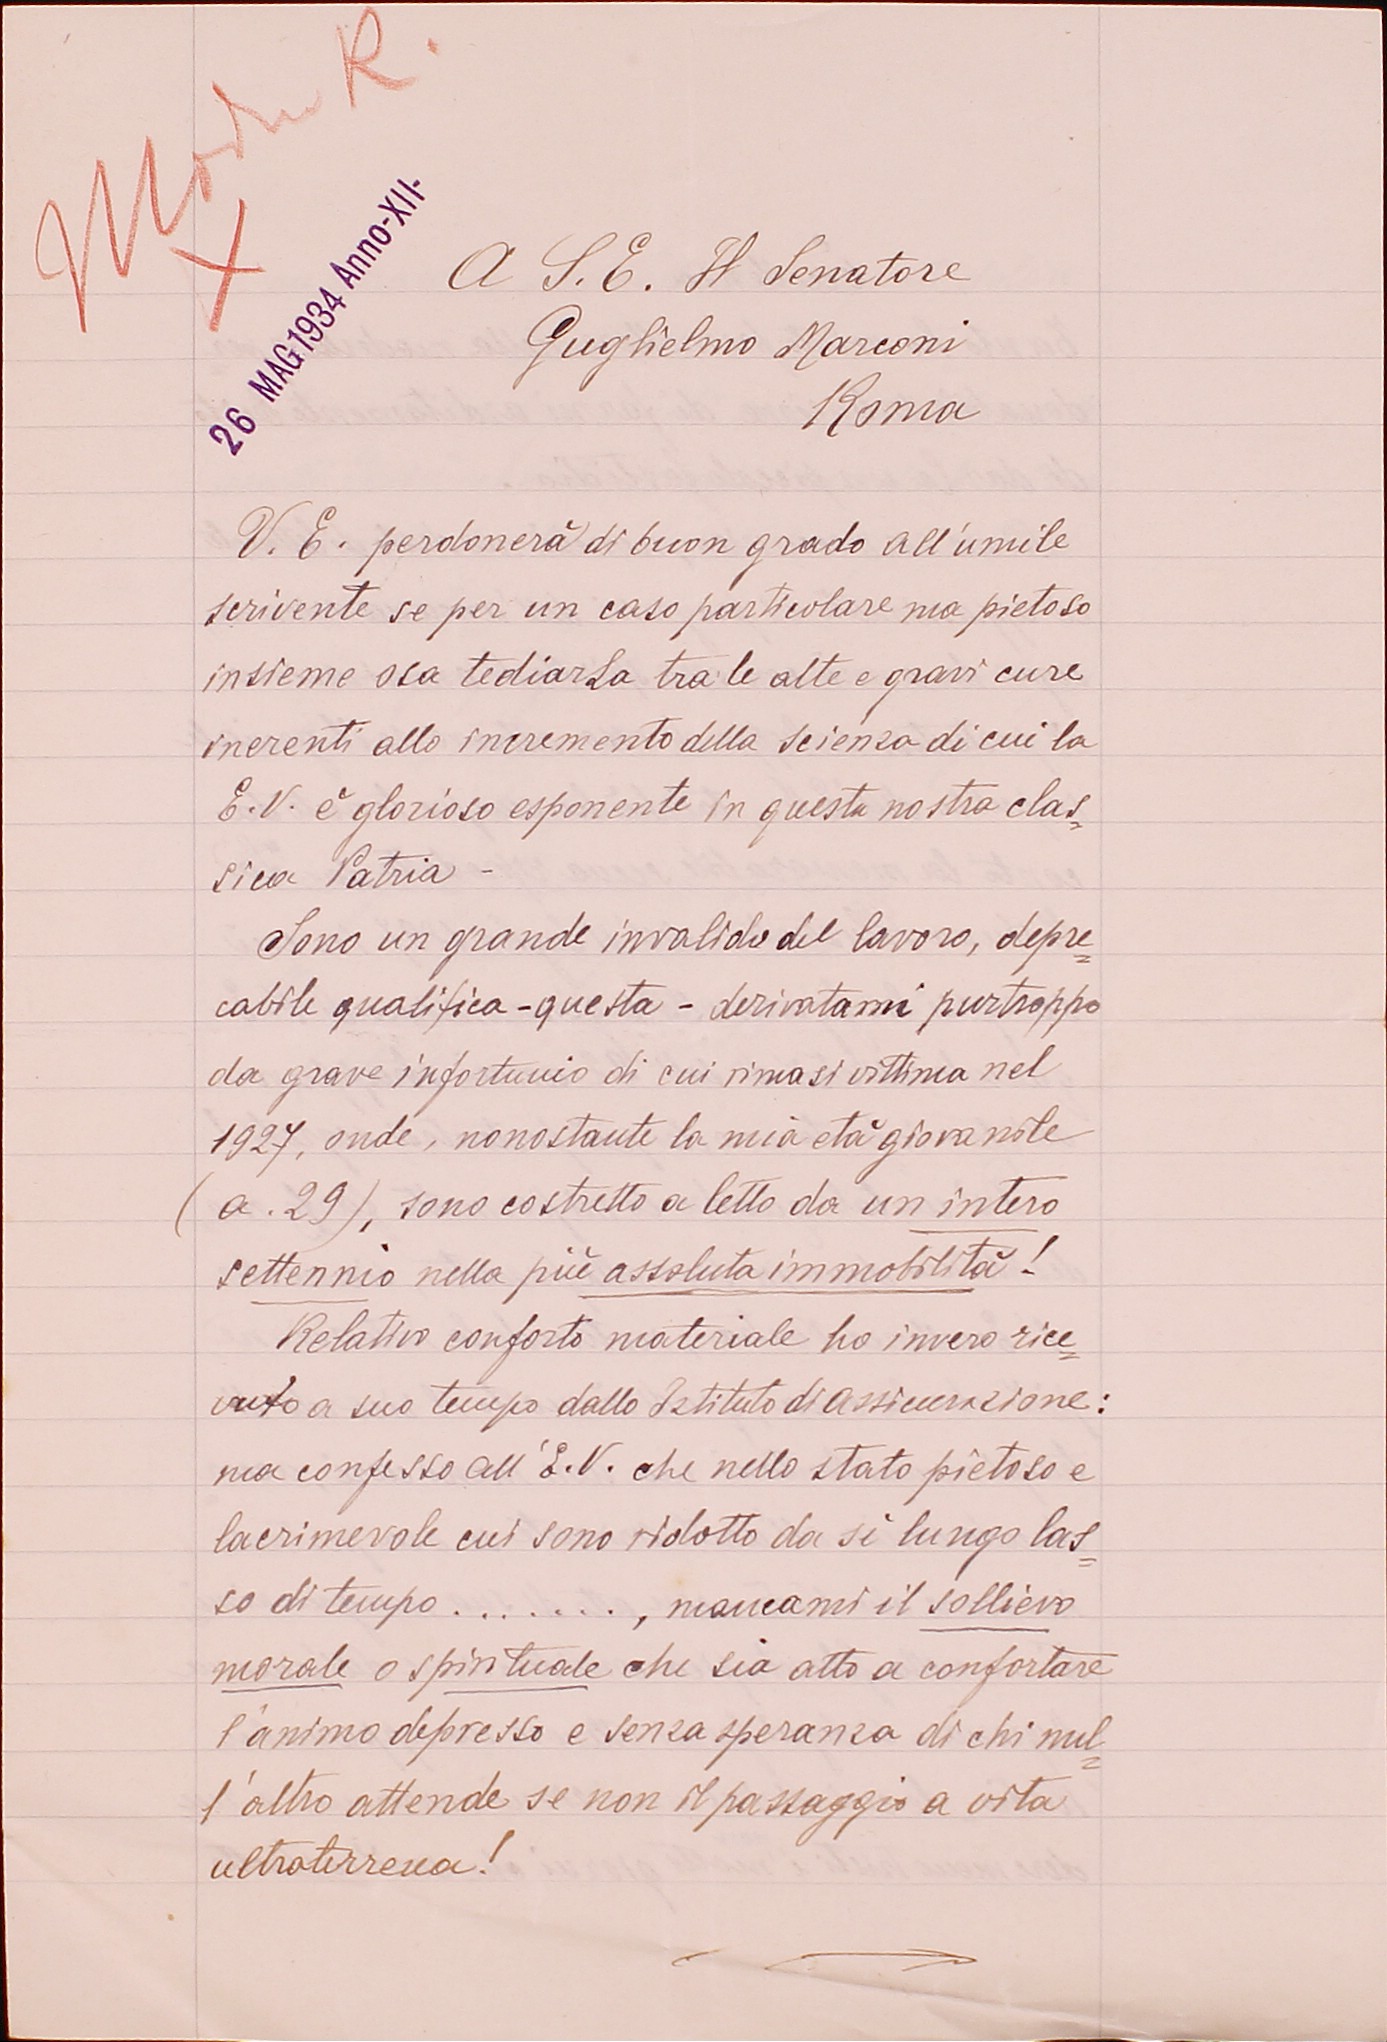 R.
26 MAG 1934 Anno-XII-
A S. E. Il Senatore
Guglielmo Marconi
Roma
V. E. perdonerà di buon grado all'umile
scrivente se per un caso particolare ma pietoso
insieme osa tediarLa tra le alte e gravi cure
inerenti allo incremento della scienza di cui la
E. V. è glorioso esponente in questa nostra clas=
sica Patria -
Sono un grande invalido del lavoro, depre=
cabile qualifica - questa - derivatami purtroppo
da grave infortunio di cui rimasi vittima nel
1927, onde, nonostante la mia età giovanile
(a. 29), sono costretto a letto da un intero
settennio nella più assoluta immobilità!
Relativo conforto materiale ho invero rice=
vuto a suo tempo dallo Istituto di assicurazione:
ma confesso all'E. V. che nello stato pietoso e
lacrimevole cui sono ridotto da sì lungo las=
so di tempo . . . . . . . , mancami il sollievo
morale o spirituale che sia atto a confortare
l'animo depresso e senza speranza di chi nul=
l'altro attende se non il passaggio a vita
ultraterrena!